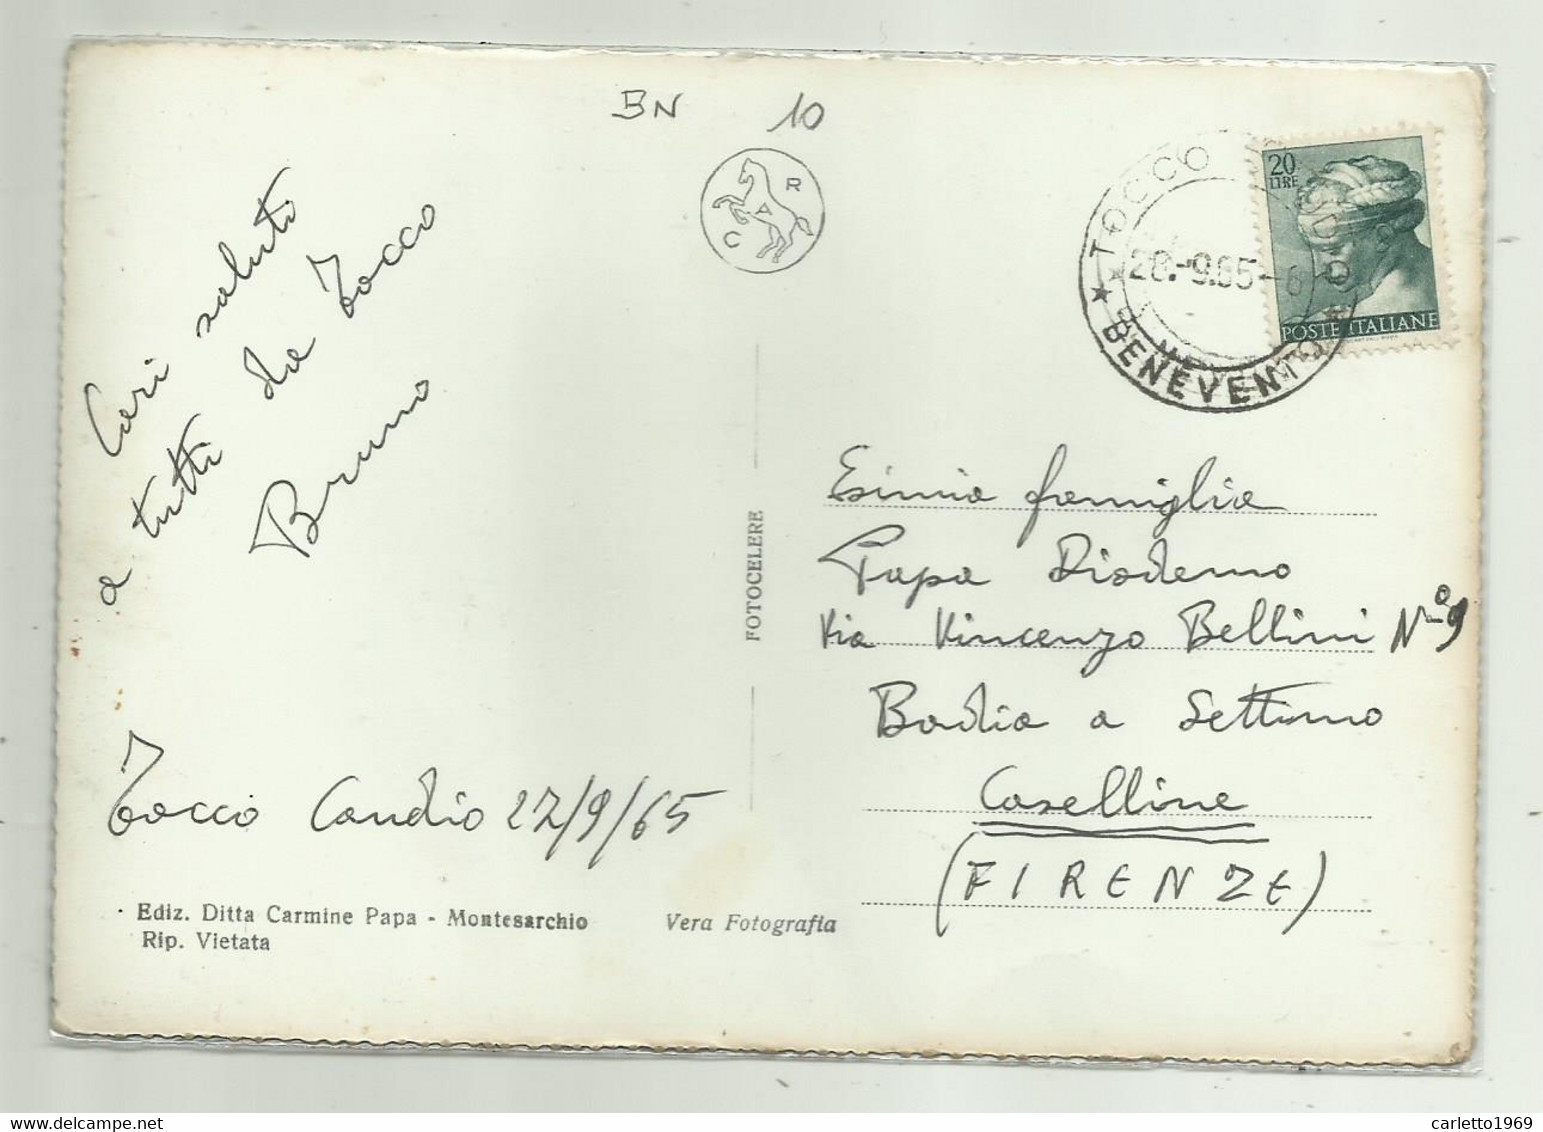 BN 10
R
A
C
Cari saluti
a tutti da Tocco
Bruno
Tocco Caudio 27/9/65
Ediz. Ditta Carmine Papa - Montesarchio
Rip. Vietata
Vera Fotografia
FOTOCELERE
TOCCO CAUDIO
28.-9.65-6
BENEVENTO
20
LIRE
POSTE ITALIANE
Esimia famiglia
Papa Diodemo
Via Vincenzo Bellini N° 9
Badia a Settimo
Caselline
(FIRENZE)
carletto1969